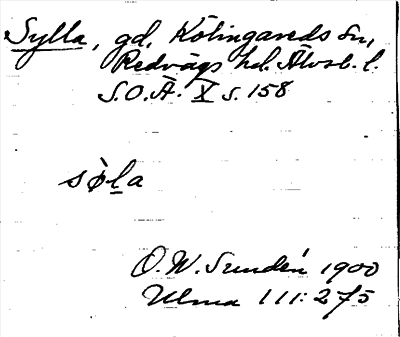 Sylla, gd, Kölingareds sn,
Redvägs hd. Älvsb. l.
S.O.Ä. X s. 158
sø̀la
O. W. Sundén 1900
Ulma 111:275